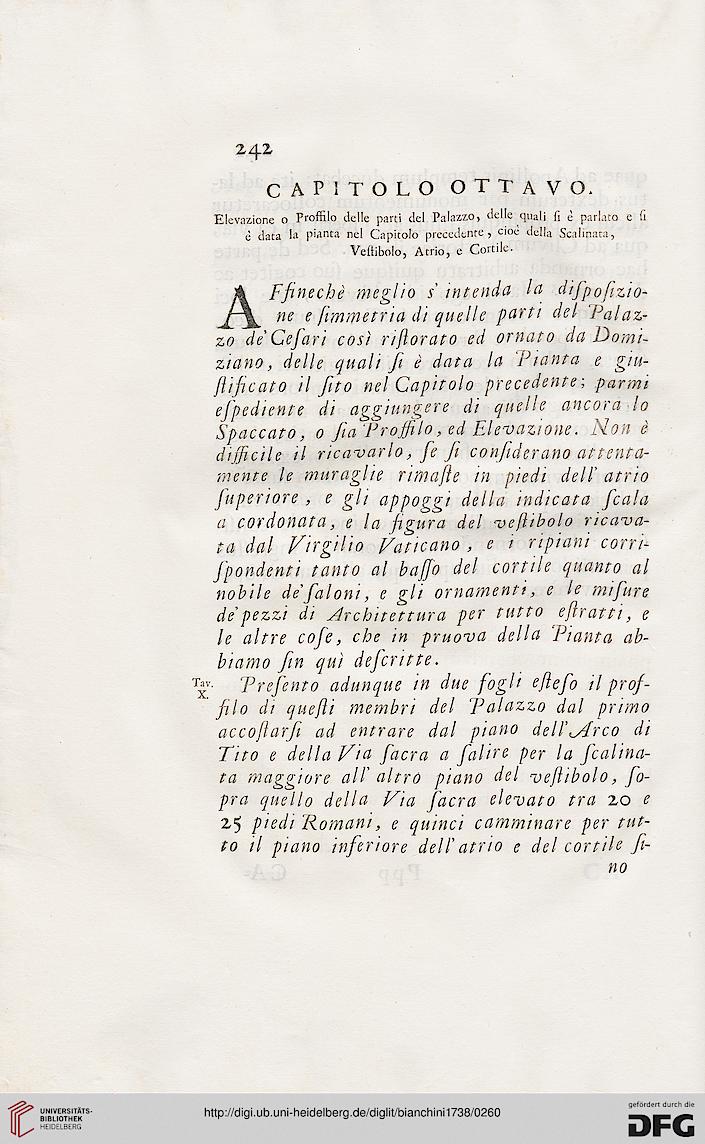 242
CAPITOLO OTTAVO.
Elevazione o Proffilo delle parti del Palazzo, delle quali ſi è parlato e ſi
è data la pianta nel Capitolo precedente, cioè della Scalinata,
Veſtibolo, Atrio, e Cortile.
AFfinechè meglio s' intenda la diſpoſizio-
ne e ſimmetria di quelle parti del Palaz-
zo de' Ceſari così riſtorato ed ornato da Domi-
ziano, delle quali ſi è data la Pianta e giu-
ſtificato il ſito nel Capitolo precedente; parmi
eſpediente di aggiungere di quelle ancora lo
Spaccato, o ſia Proffilo, ed Elevazione. Non è
difficile il ricavarlo, ſe ſi conſiderano attenta-
mente le muraglie rimaſte in piedi dell' atrio
ſuperiore, e gli appoggi della indicata ſcala
a cordonata, e la figura del veſtibolo ricava-
ta dal Virgilio Vaticano, e i ripiani corri-
ſpondenti tanto al baſſo del cortile quanto al
nobile de' ſaloni, e gli ornamenti, e le miſure
de' pezzi di Architettura per tutto eſtratti, e
le altre coſe, che in pruova della Pianta ab-
biamo ſin quì deſcritte.
Tav. X. Preſento adunque in due fogli eſteſo il prof-
filo di queſti membri del Palazzo dal primo
accoſtarſi ad entrare dal piano dell' Arco di
Tito e della Via ſacra a ſalire per la ſcalina-
ta maggiore all' altro piano del veſtibolo, ſo-
pra quello della Via ſacra elevato tra 20 e
25 piedi Romani, e quinci camminare per tut-
to il piano inferiore dell' atrio e del cortile ſi-
no
UNIVERSITÄTS-
BIBLIOTHEK
HEIDELBERG
http://digi.ub.uni-heidelberg.de/diglit/bianchini1738/0260
gefördert durch die
DFG